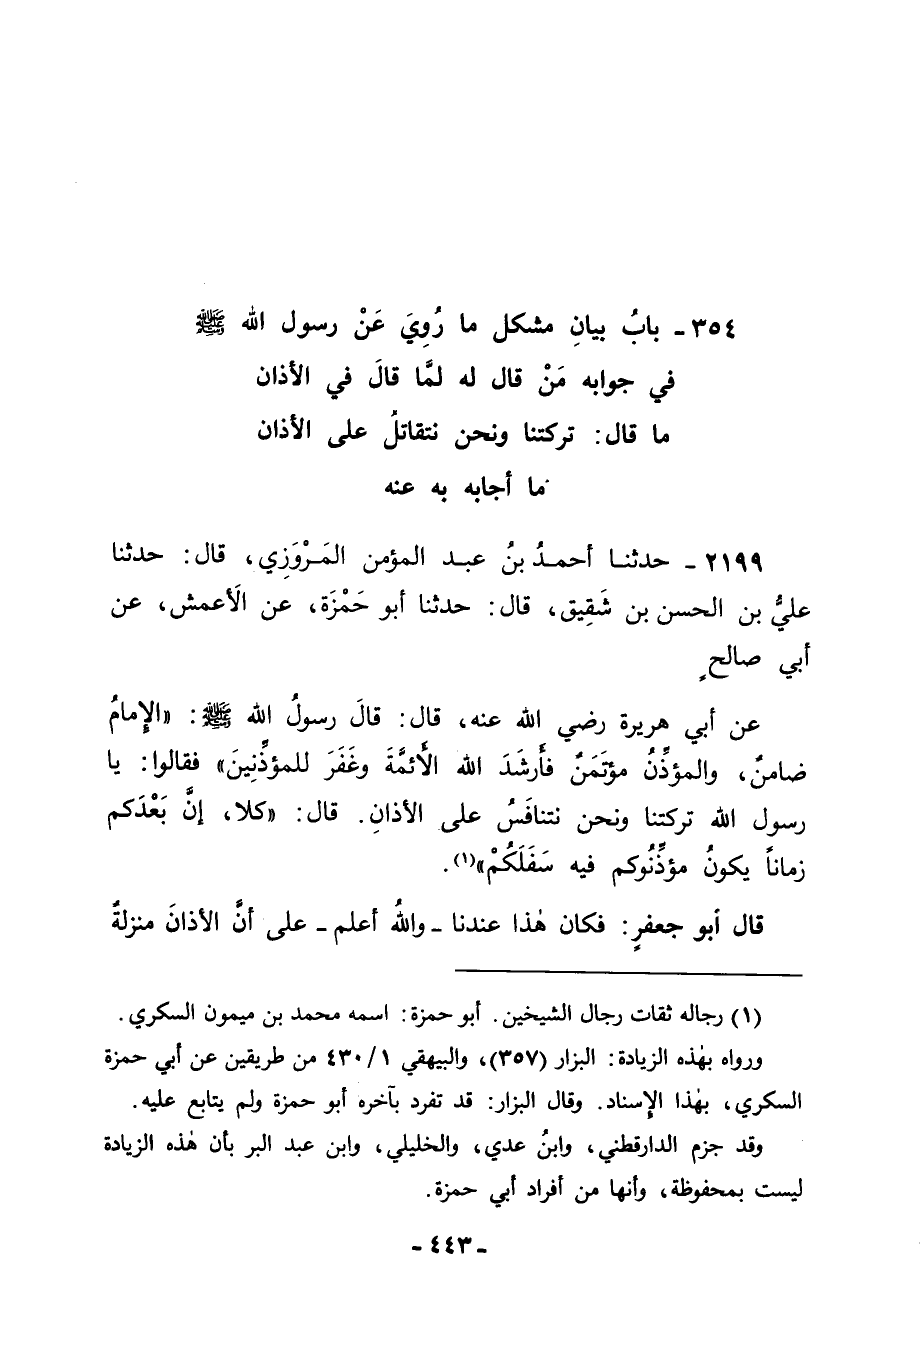 ٣٥٤ - بابُ بيانِ مشكل ما رُوِيَ عَنْ رسول الله ﷺ
في جوابه مَنْ قال له لمَّا قالَ في الأذان
ما قال: تركتنا ونحن نتقاتلُ على الأذان
ما أجابه به عنه
٢١٩٩ - حدثنا أحمدُ بنُ عبد المؤمن المَرْوَزِي، قال: حدثنا
عليُّ بن الحسن بن شَقِيق، قال: حدثنا أبو حَمْزَة، عن الَأعمش، عن
أبي صالحٍ
عن أبي هريرة رضي الله عنه، قال: قالَ رسولُ الله ﷺ: «الإِمامُ
ضامنٌ، والمؤذِّنُ مؤتَمَنٌ فأَرشَدَ الله الأَئمَّةَ وغَفَرَ للمؤذِّنِينَ» فقالوا: يا
رسول الله تركتنا ونحن نتنافَسُ على الأذانِ. قال: «كلا، إنَّ بَعْدَكم
زماناً يكونُ مؤذِّنُوكم فيه سَفَلَكُمْ»(١).
قال أبو جعفرٍ: فكان هٰذا عندنا - واللهُ أعلم - على أنَّ الأذانَ منزلةٌ
(١) رجاله ثقات رجال الشيخين. أبو حمزة: اسمه محمد بن ميمون السكري.
ورواه بهٰذه الزيادة: البزار (٣٥٧)، والبيهقي ٤٣٠/١ من طريقين عن أبي حمزة
السكري، بهٰذا الإسناد. وقال البزار: قد تفرد بآخره أبو حمزة ولم يتابع عليه.
وقد جزم الدارقطني، وابنُ عدي، والخليلي، وابن عبد البر بأن هٰذه الزيادة
ليست بمحفوظة، وأنها من أفراد أبي حمزة.
- ٤٤٣ -